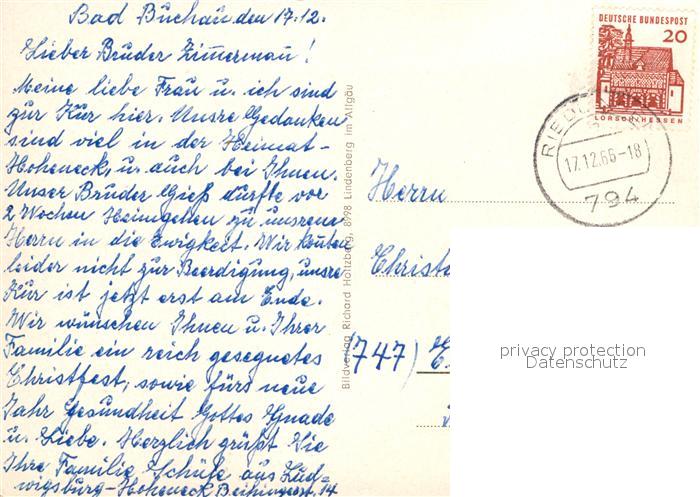 Bad Buchau den 17.12.
Lieber Bruder Zimmermann!
Meine liebe Frau u. ich sind
zur Kur hier. Unsre Gedanken
sind viel in der Heimat-
Hoheneck, u. auch bei Ihnen.
Unser Bruder Gieß durfte vor
2 Wochen Heimgehen zu unsrem
Herrn in die Ewigkeit. Wir konten
leider nicht zur Beerdigung, unsre
Kur ist jetzt erst am Ende.
Wir wünschen Ihnen u. Ihrer
Familie ein reich gesegnetes
Christfest, sowie fürs neue
Jahr Gesundheit Gottes Gnade
u. Liebe. Herzlich grüßt Sie
Ihre Familie Schüfe aus Lud=
wigsburg-Hoheneck 14
Bildverlag Richard Holtzberg, 8998 Lindenberg im Allgäu
DEUTSCHE BUNDESPOST
20
LORSCH/HESSEN
RIED
17.12.66-18
794
Herrn
Christ
(747)
privacy protection
Datenschutz